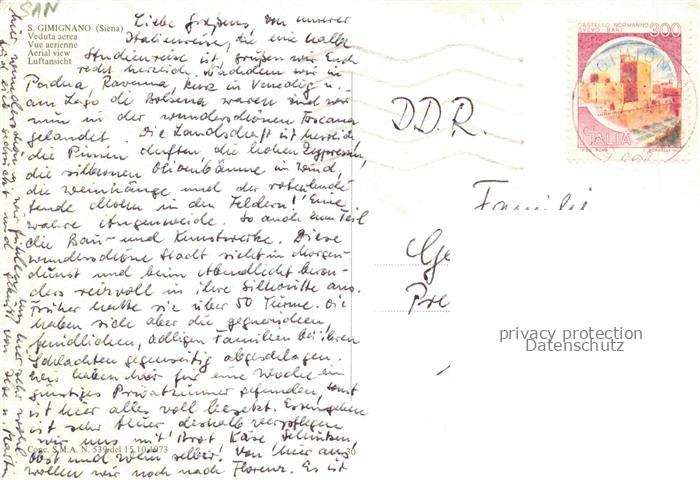 SAN
S. GIMIGNANO (Siena)
Veduta aerea
Vue aerienne
Aerial view
Luftansicht
Liebe von unserer
Italienreise, die eine halbe
Studienreise ist, grüßen wir Euch
recht herzlich. Nachdem wir in
Padua, Ravenna, kurz in Venedig u.
am Lago di Bolsena waren sind wir
nun in der wunderschönen Toscana
gelandet. Die Landschaft ist herrlich
die Pinien duften die hohen Zypressen,
die silbernen Olivenbäume im Wind,
die Weinhänge und der rote
Mohn in den Feldern! Eine
wahre Augenweide. So auch zum Teil
die Bau- und Kunstwerke. Diese
wunderschöne Stadt sieht im Morgen-
dunst und beim Abendlicht beson-
ders reizvoll in ihre Silhouette aus.
Früher hatte sie über 50 Türme. Die
haben sich aber die gegnerischen,
feindlichen, adligen Familien bei ihren
Schlachten gegenseitig abgeschlagen.
Hier haben wir für eine Woche ein
günstiges Privatzimmer gefunden, sonst
ist hier alles voll besetzt. Essengehen
ist sehr teuer deshalb verpflegen
wir uns mit Brot Käse Schinken
Obst und Wein selber! Von hier aus
wollen wir noch nach Florenz. Es ist
hier wunderschön wir fühlen uns hier sehr wohl
Seid und von Ilse u. Martin
Conc. S.M.A. N. 539 del 15.10.1973
30
D.D.R.
Familie
Ge
Pre
CASTELLO NORMANNO
SVEVO BARI
300
ITALIA
privacy protection
Datenschutz